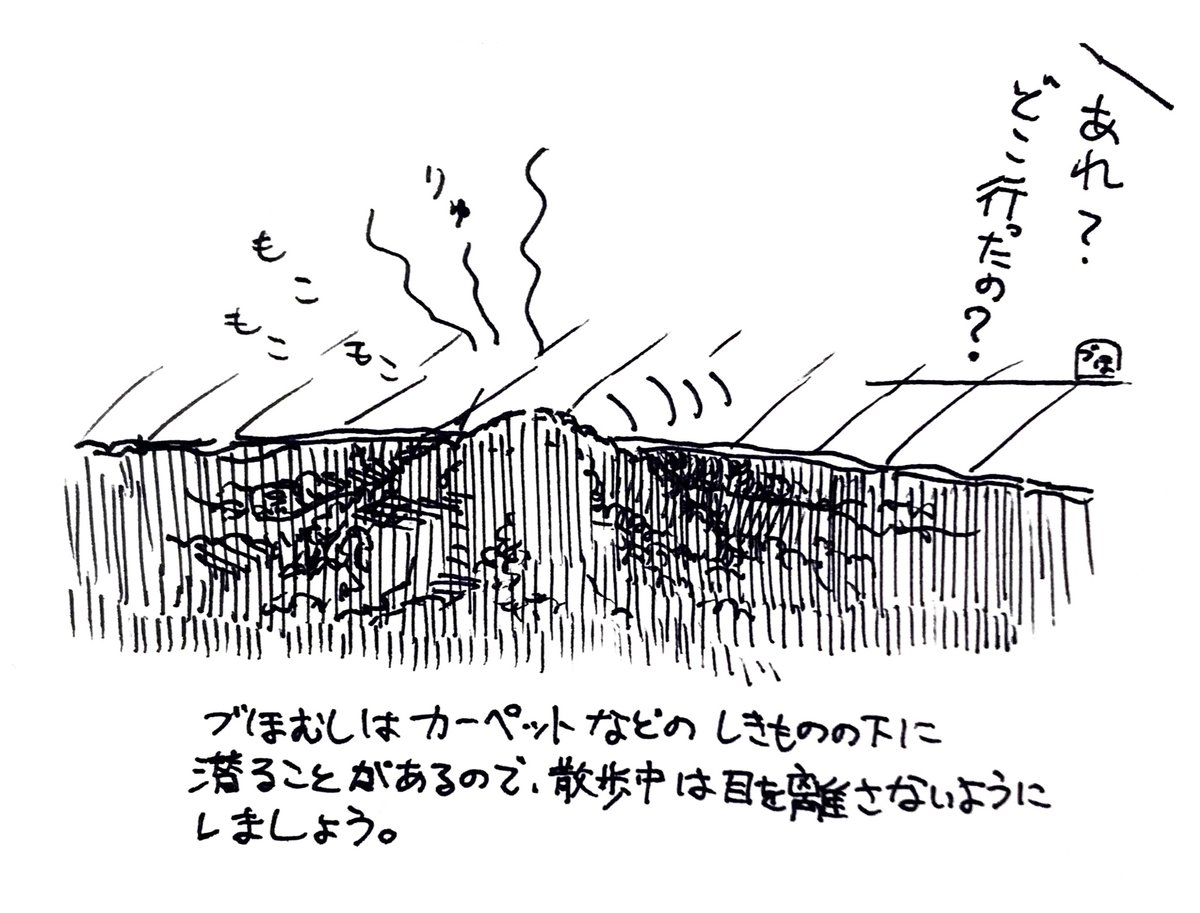 あれ?
どこ行ったの?
づほ
りゅ
もこ
もこ
もこ
づほむしはカーペットなどのしきものの下に
潜ることがあるので、散歩中は目を離さないように
しましょう。